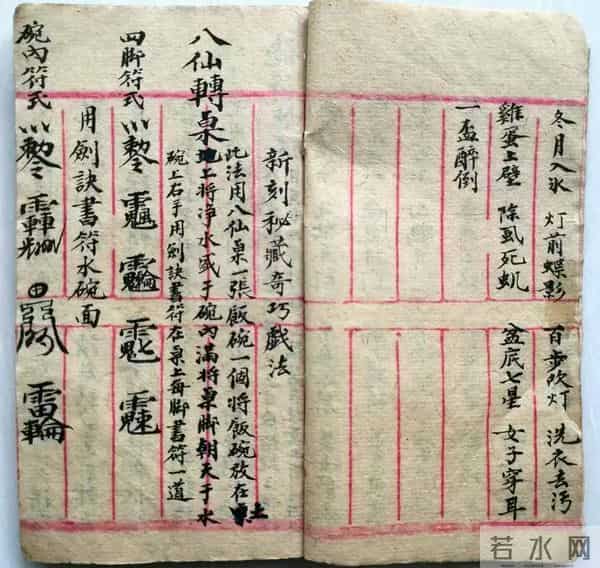 冬月入氷 灯前蝶影 百步吹灯 洗衣去污
雞蛋上壁 除虱死虮 盆底七星 女子穿耳
一盃醉倒
新刻秘藏奇巧戲法
八仙轉桌
此法用八仙桌一張飯碗一個將飯碗放在土
地上将净水盛于碗內滿將桌脚朝天于水
碗上右手用劍訣書符在桌上每脚書符一道
四脚符式
用劍訣書符水碗面
碗內符式
若水网